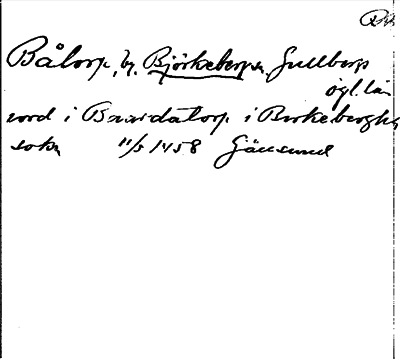 Båtorp, by, Björkeberga sn Gullbergs
ögl. län
nord i Baardatorp i Birkebergha
sokn 11/5 1458 Gäusund